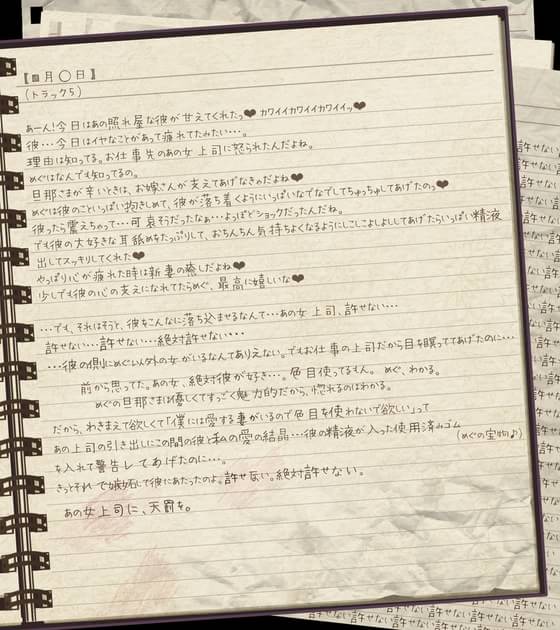 【■月〇日】
(トラック5)
あーん!今日はあの照れ屋な彼が甘えてくれたっ♥ カワイイカワイイカワイイッ♥
彼…今日はイヤなことがあって疲れてたみたい…。
理由は知ってる。お仕事先のあの女上司に怒られたんだよね。
めぐはなんでも知ってるの。
旦那さまが辛いときは、お嫁さんが支えてあげなきゃだよね♥
めぐは彼のこといっぱい抱きしめて、彼が落ち着くようにいっぱいなでなでしてちゅっちゅしてあげたのっ♥
彼ったら震えちゃって…可哀そうだったなぁ…よっぽどショックだったんだね。
でも彼の大好きな耳舐めをたっぷりして、おちんちん気持ちよくなるようにしこしこよしよししてあげたらいっぱい精液
出してスッキリしてくれた♥
やっぱり心が疲れた時は新妻の癒しだよね♥
少しでも彼の心の支えになれてたらめぐ、最高に嬉しいな♥
…でも、それはそうと、彼をこんなに落ち込ませるなんて…あの女上司、許せない…
許せない…許せない…絶対許せない…
…彼の側にめぐ以外の女がいるなんてありえない。でもお仕事の上司だから目を瞑っててあげたのに…
前から思ってた。あの女、絶対彼が好き…。色目使ってるもん。めぐ、わかる。
めぐの旦那さまは優しくてすっごく魅力的だから、惚れるのはわかる。
だから、わきまえて欲しくて「僕には愛する妻がいるので色目を使わないで欲しい」って
あの上司の引き出しにこの間の彼と私の愛の結晶…彼の精液が入った使用済みゴム
(めぐの宝物♪)
を入れて警告してあげたのに…。
きっとそれで嫉妬にて彼にあたったのよ。許せない。絶対許せない。
あの女上司に、天罰を。
許せない
許せない
許せない
許せない
許せない
許せない
許せない
許せない
許せない
許せない
許せない許せない許せない
許せない許せない許せない